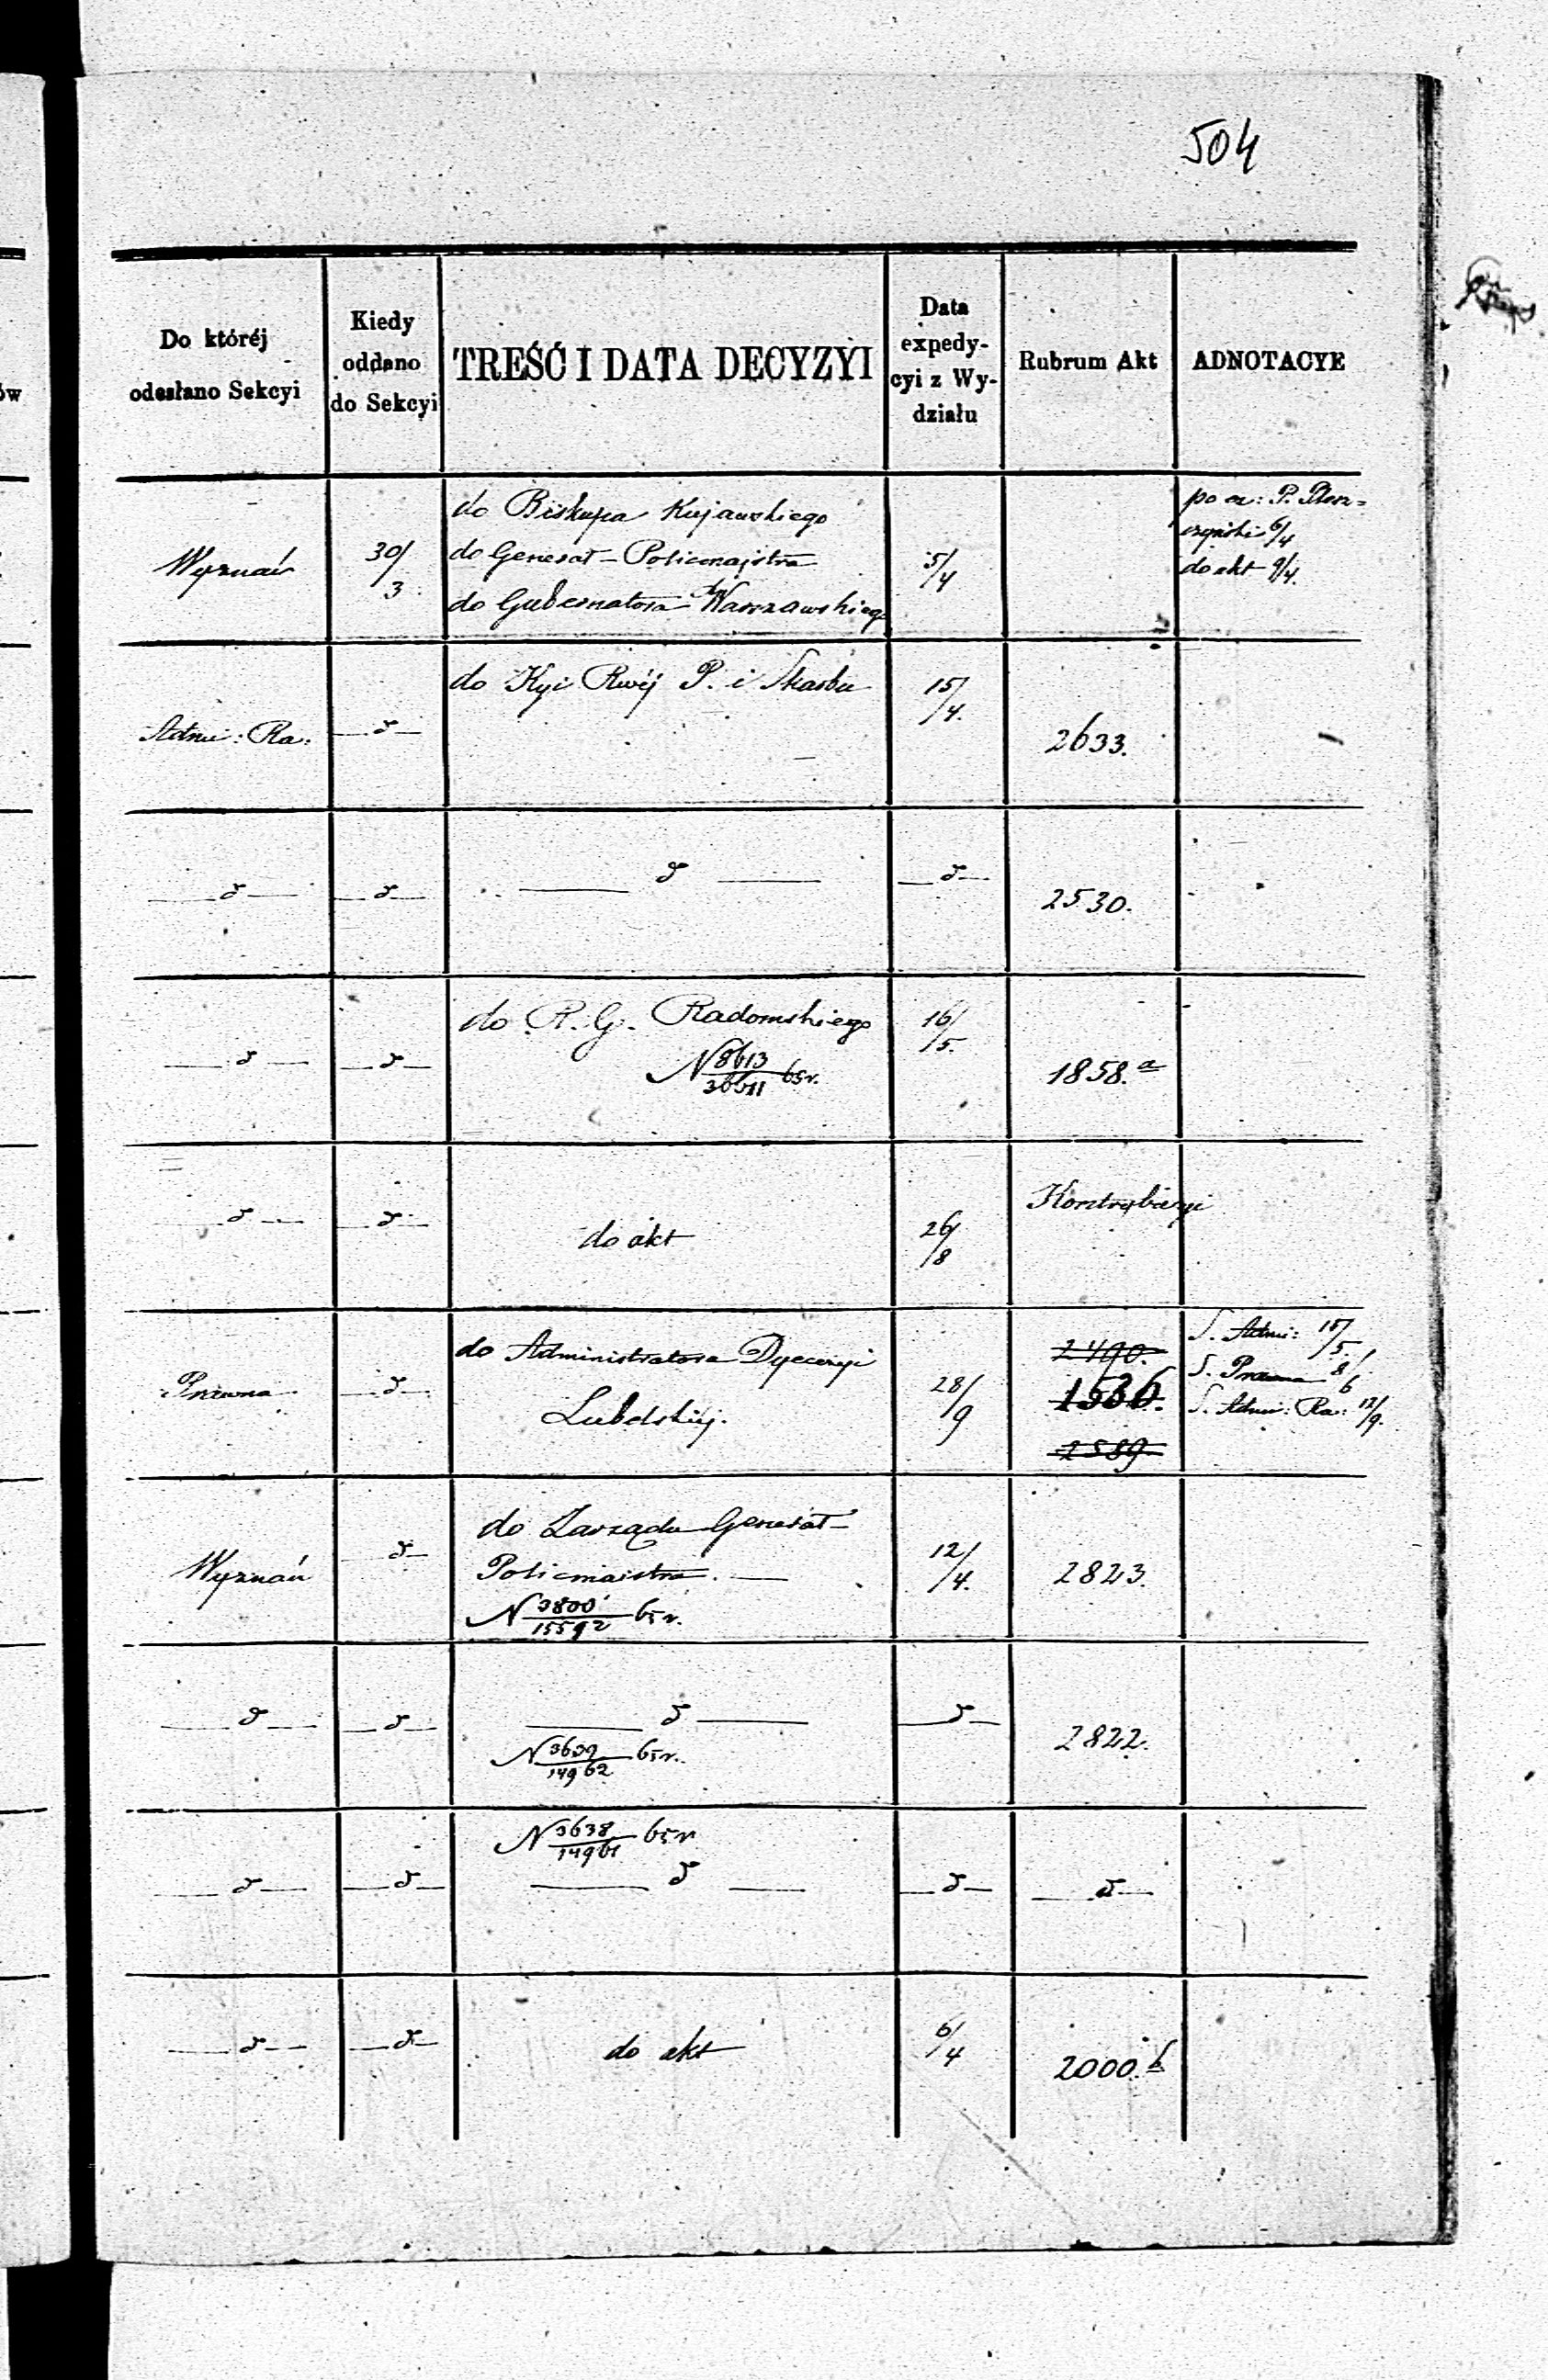 504
Do któréj
odesłano Sekcyi
Kiedy
oddano
do Sekcyi
TREŚĆ I DATA DECYZYI
Data
expedy-
cyi z Wy-
działu
Rubrum Akt
ADNOTACYE
ów
Wyznań
30/3
do Biskupa Kujawskiego
do Generał-Policmajstra
do Gubernatora Warszawskiego
5/4
po ex: P.
6/4
do akt 9/4.
Admi: Ra:
— d —
do Kyi Rwéj P. i Skarbu
15/4.
2633.
— d —
— d —
— d —
— d —
2530.
— d —
— d —
do R. G. Radomskiego
N 8613/36611 65 r.
16/5.
1858.a
— d —
— d —
do akt
26/8
Kontrybucyi
Prawna
— d —
do Administratora Dyecezyi
Lubelskiéj.
28/9
2490.
1536.
2589
S. Admi: 15/5.
S. Prawna 8/6
S. Admi: Ra: 12/9.
Wyznań
— d —
do Zarządu Generał-
Policmajstra. —
N 3800/15592 65 r.
12/4.
2823.
— d —
— d —
— d —
N 3639/14962 65 r.
— d —
2822.
N 3638/14961 65 r
— d —
— d —
— d —
— d —
— d —
— d —
— d —
do akt
6/4
2000.b